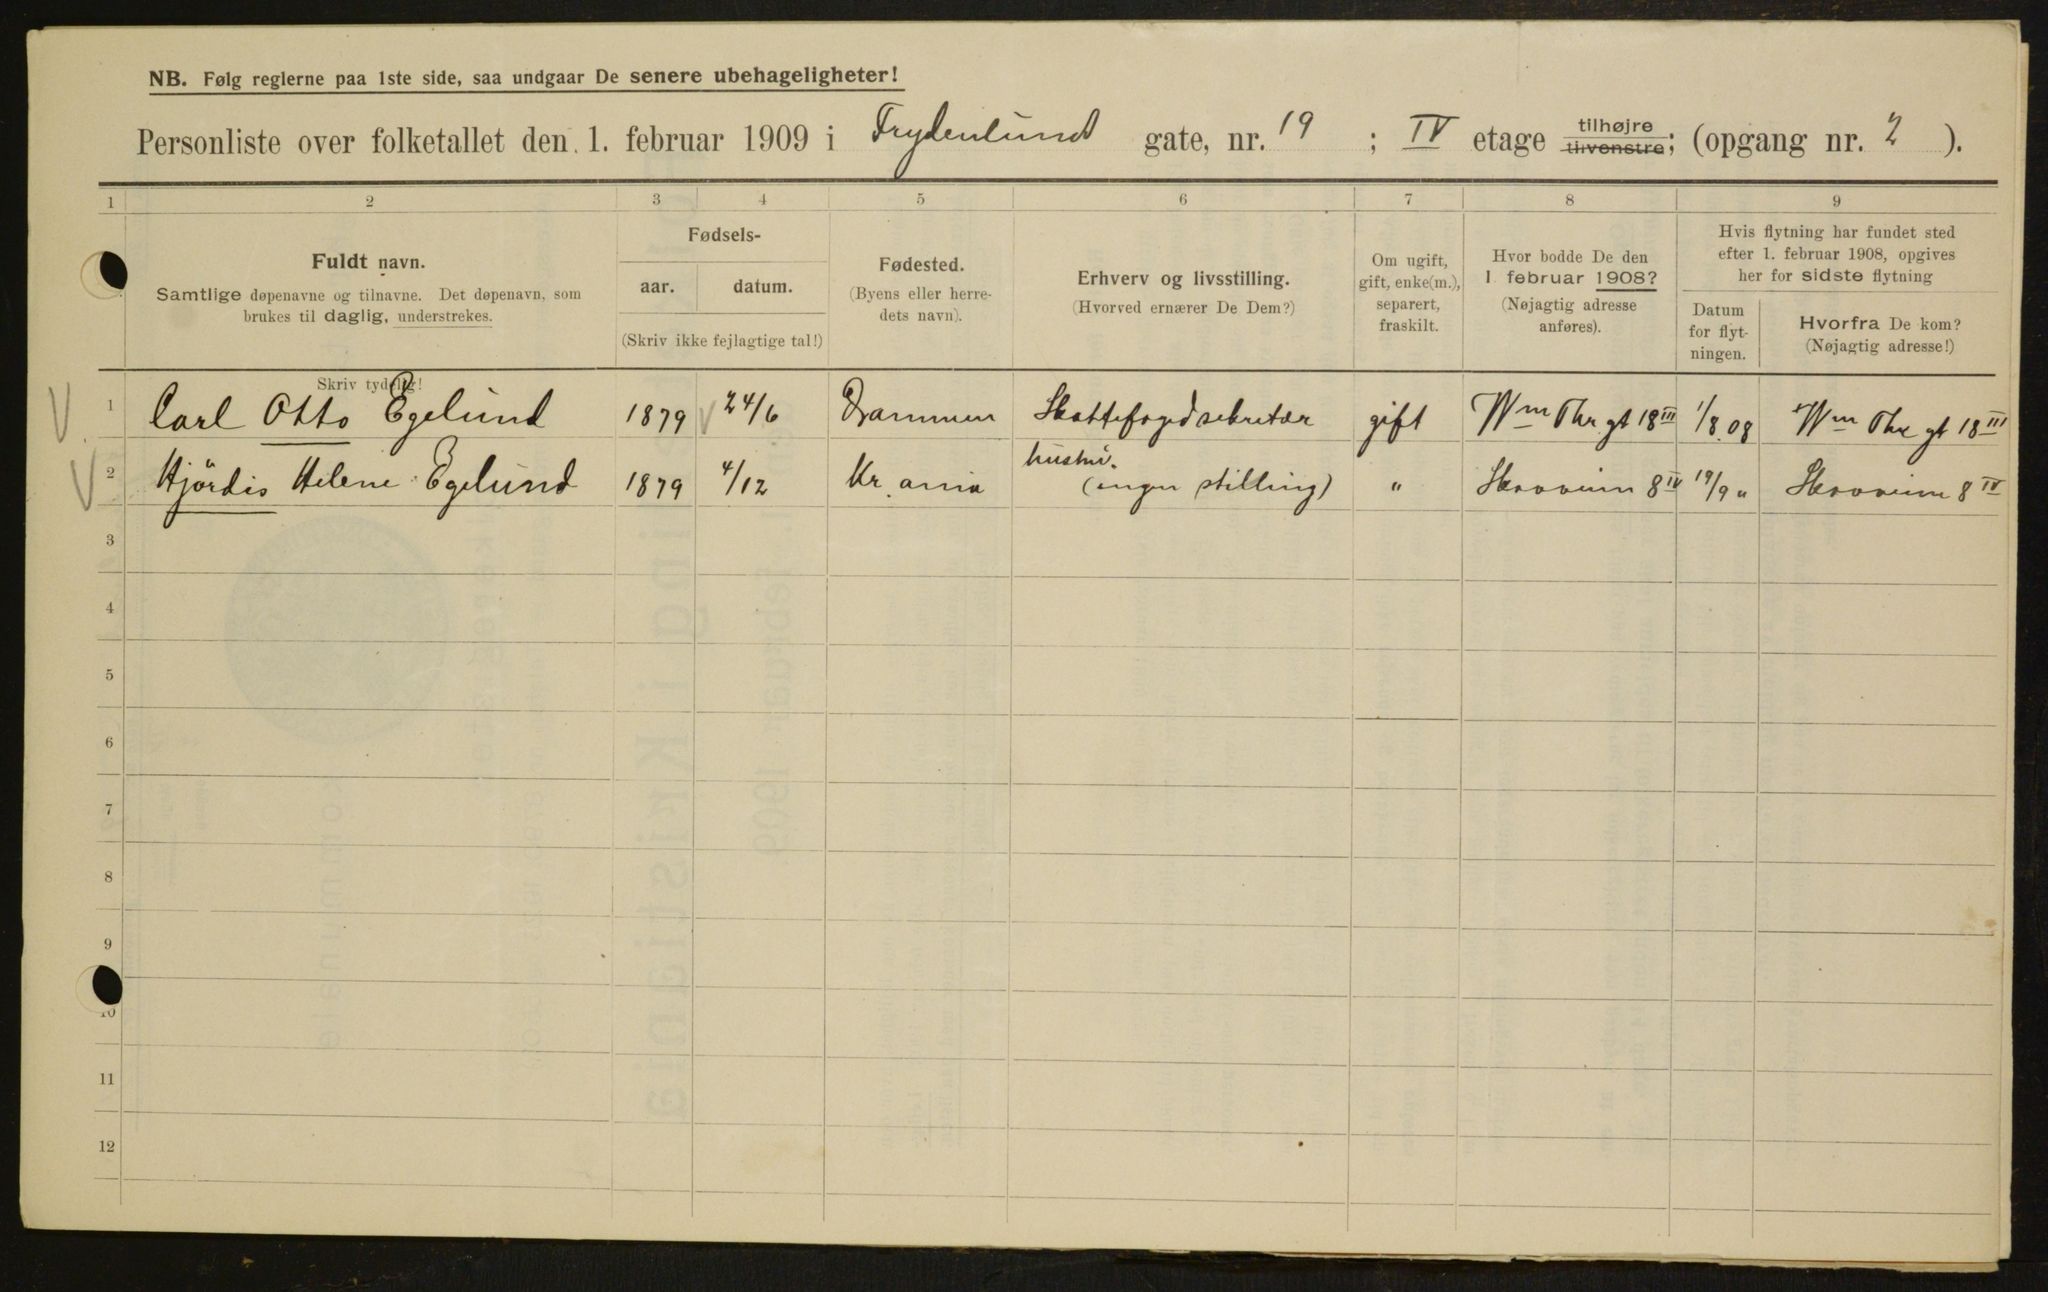 NB. Følg reglerne paa 1ste side, saa undgaar De senere ubehageligheter!
Personliste over folketallet den 1. februar 1909 i Frydenlund gate, nr. 19 ; IV etage tilhøjre tilvenstre; (opgang nr. 2 ).
1 2 3 4 5 6 7 8 9
Fuldt navn.
Samtlige døpenavne og tilnavne. Det døpenavn, som
brukes til daglig, understrekes.
Skriv tydelig!
Fødsels-
aar. datum.
(Skriv ikke fejlagtige tal!)
Fødested.
(Byens eller herre-
dets navn).
Erhverv og livsstilling.
(Hvorved ernærer De Dem?)
Om ugift,
gift, enke(m.),
separert,
fraskilt.
Hvor bodde De den
1 februar 1908?
(Nøjagtig adresse
anføres).
Hvis flytning har fundet sted
efter 1. februar 1908, opgives
her for sidste flytning
Datum
for flyt-
ningen.
Hvorfra De kom?
(Nøjagtig adresse!)
1 Carl Otto Egelund 1879 24/6 Drammen Skattefogedsekretær gift Wm Thr. gt 18 III 1/8.08 Wm Thr gt 18 III
2 Hjördis Helene Egelund 1879 4/12 Kr.ania hustru. (ingen stilling) " 8 IV 19/9 " 8 IV
3
4
5
6
7
8
9
10
11
12